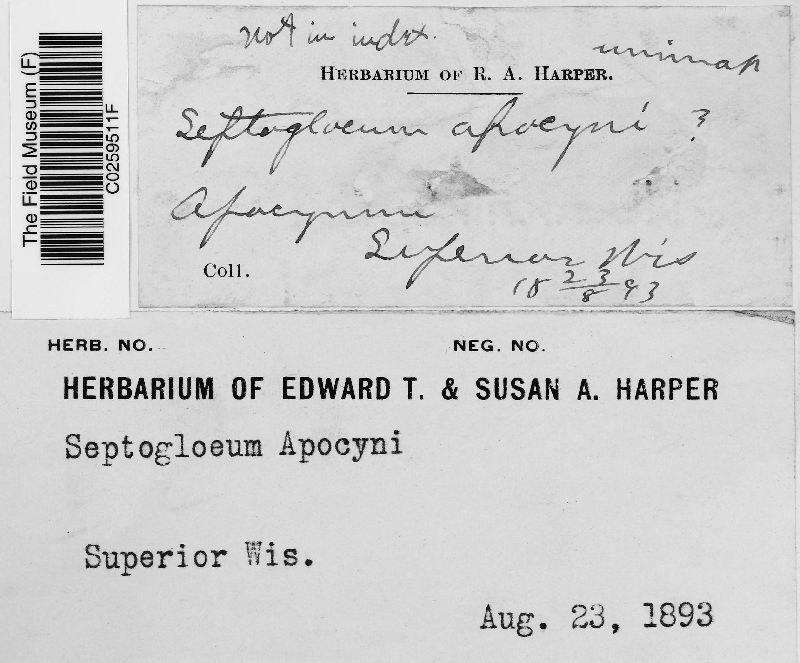 The Field Museum (F)
C0259511F
not in index.
HERBARIUM OF R. A. HARPER.
Septogloeum apocyni ?
Apocynum
Superior Wis
Coll.
18 23/8 93
HERB. NO.
NEG. NO.
HERBARIUM OF EDWARD T. & SUSAN A. HARPER
Septogloeum Apocyni
Superior Wis.
Aug. 23, 1893